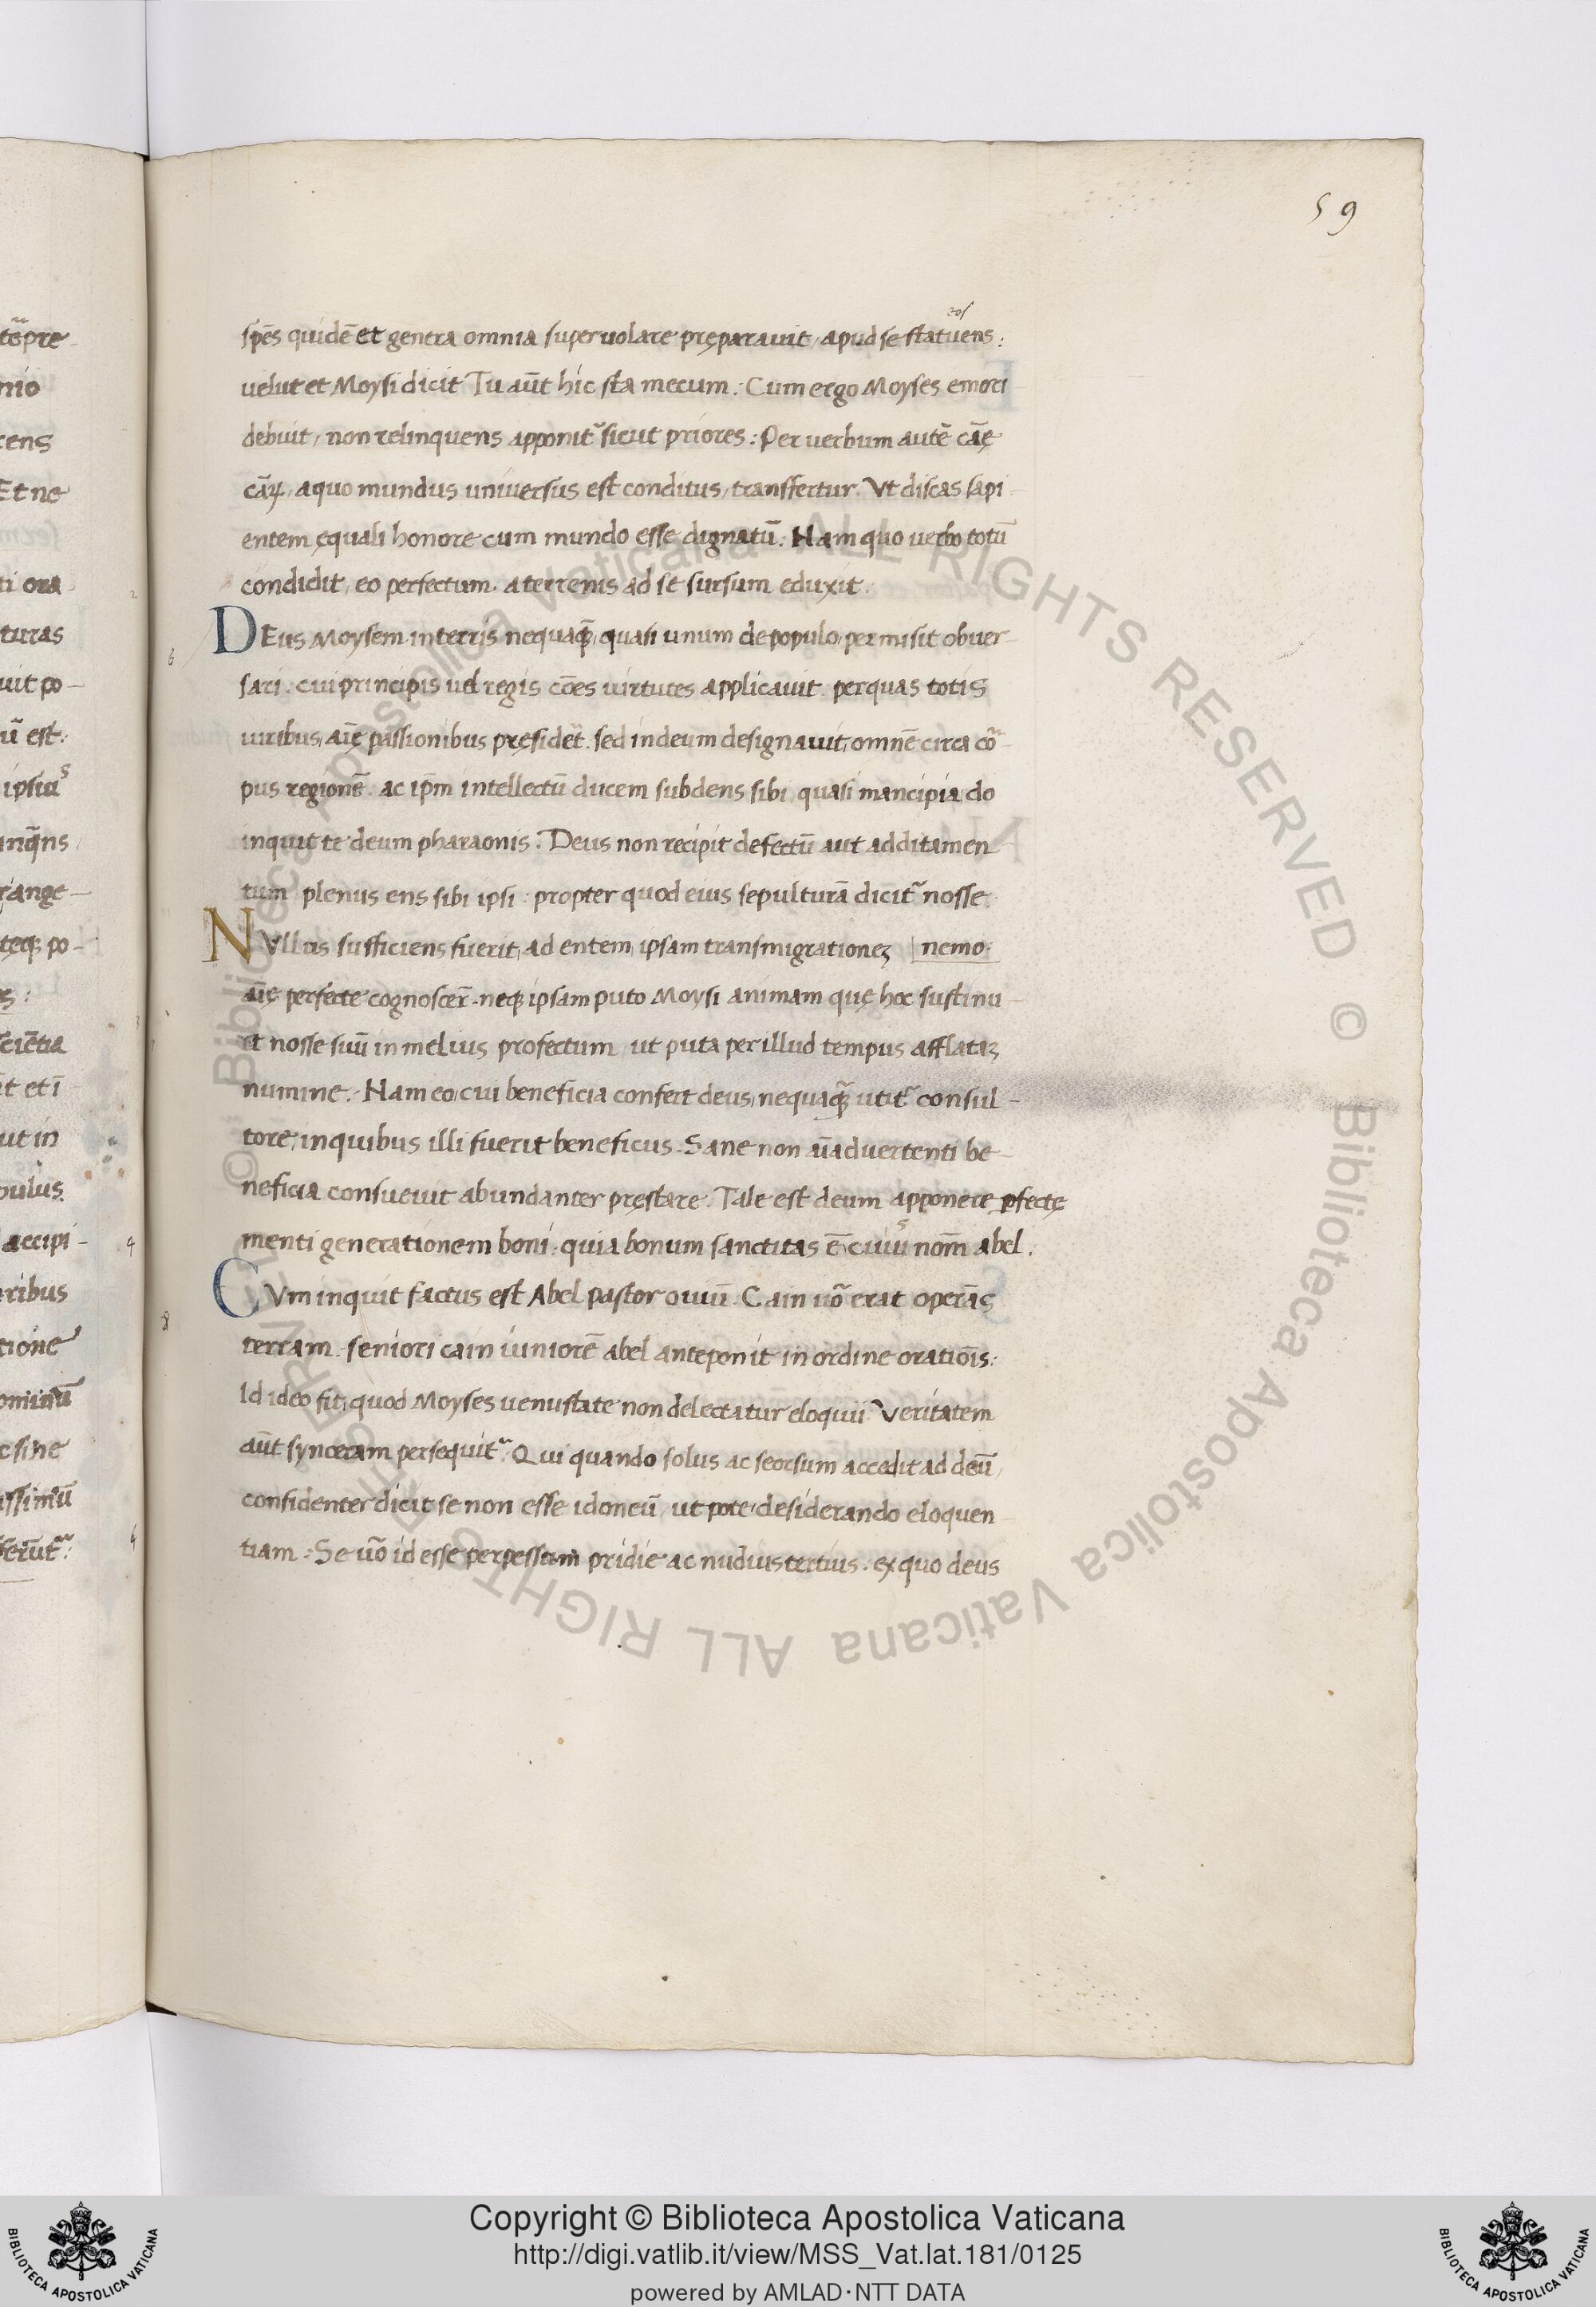 59
tẽpre
nio
cens
Et ne
ti ora
turas
uit po-
ũ est:
ipsiu⁹
inq̃ns
range-
teq; po-
sciẽtia
ut in
pulus.
accipi-
ribus
tione
ominũ
c sine
issimũ
eos
sp̃es quidẽ et genera omnia superuolare pręparauit, apud se statuens:
uelut et Moysi dicit Tu aũt hic sta mecum: Cum ergo Moyses emori
debuit, non relinquens apponit᷒ sicut priores: Per uerbum autẽ cãę
cãꝝ, a quo mundus uniuersus est conditus, transfertur. Vt discas sapi
entem ęquali honore cum mundo esse dignatũ. Nam quo uerbo totũ
condidit, eo perfectum. a terrenis ad se sursum eduxit.
DEus Moysem in terris nequaq̃, quasi unum de populo, permisit obuer-
sari. cui principis uel regis cões uirtutes applicauit. per quas totis
uiribus, aĩę passionibus pręsideret̃. sed in deum designauit, omnẽ circa cor̃-
pus regionẽ. ac ip̃m intellectũ ducem subdens sibi quasi mancipia, do
inquit te deum pharaonis: Deus non recipit defectũ aut additamen
tum plenus ens sibi ipsi: propter quod eius sepulturã dicit᷒ nosse.
NVllus sufficiens fuerit, ad entem, ipsam transmigrationeʒ nemo.
aĩę perfecte cognoscer̃. neq; ipsam puto Moysi animam quę hoc sustinu-
it nosse suũ in melius profectum, ut puta per illud tempus afflataʒ
numine. Nam eo, cui beneficia confert deus, nequaq̃ utit᷒ consul-
tore, in quibus illi fuerit beneficus. Sane non ãaduertenti be-
neficia consueuit abundanter pręstare. Tale est deum apponere ꝑfectę
menti generationem boni: quia bonum sanctitas ẽ, cuiu⁹ nom̃ abel.
CVm inquit factus est Abel pastor ouiũ. Cain uõ erat operãs
terram. seniori cain iuniorẽ abel anteponit in ordine oratiõis:
Id ideo fit, quod Moyses uenustate non delectatur eloquii Veritatem
aũt synceram persequit᷒. Qui quando solus ac seorsum accedit ad deũ,
confidenter dicit se non esse idoneũ, ut pote desiderando eloquen
tiam: Se uõ id esse perpessum pridie ac nudiustertius. ex quo deus
Copyright © Biblioteca Apostolica Vaticana
http://digi.vatlib.it/view/MSS_Vat.lat.181/0125
powered by AMLAD·NTT DATA